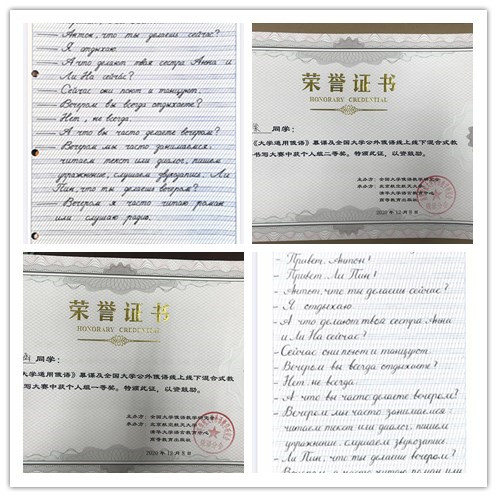 — Антон, что ты делаешь сейчас?
— Я отдыхаю.
— А что делают твоя сестра Анна и
Ли На сейчас?
— Сейчас они поют и танцуют.
— Вечером вы всегда отдыхаете?
— Нет, не всегда.
— А что вы часто делаете вечером?
— Вечером мы часто занимаемся:
читаем текст или диалог, пишем
упражнение, слушаем звукозапись. Ли
Пин, что ты делаешь вечером?
— Вечером я часто читаю роман
или слушаю радио.
荣誉证书
HONORARY CREDENTIAL
同学:
《大学通用俄语》慕课及全国大学公外俄语线上线下混合式教
书写大赛中获个人组二等奖。特颁此证,以资鼓励。
主办方:全国大学俄语教学研究会
承办方:北京航空航天大学
清华大学语言教学中心
高等教育出版社
2020年12月
荣誉证书
HONORARY CREDENTIAL
同学:
大学通用俄语》慕课及全国大学公外俄语线上线下混合式教
写大赛中获个人组一等奖。特颁此证,以资鼓励。
主办方:全国大学俄语教学研究会
承办方:北京航空航天大学
清华大学语言教学中心
高等教育出版社
2020年12月
— Привет, Антон!
— Привет, Ли Пин!
— Антон, что ты делаешь сейчас?
— Я отдыхаю
— А что делают твоя сестра Анна
и Ли На сейчас?
— Сейчас они поют и танцуют.
— Вечером вы всегда отдыхаете?
— Нет, не всегда.
— А что вы часто делаете вечером?
— Вечером мы часто занимаемся:
читаем текст или диалог, пишем
упражнение, слушаем звукозапись.
— Ли Пин, что ты делаешь вечером?
— Вечером я часто читаю роман или